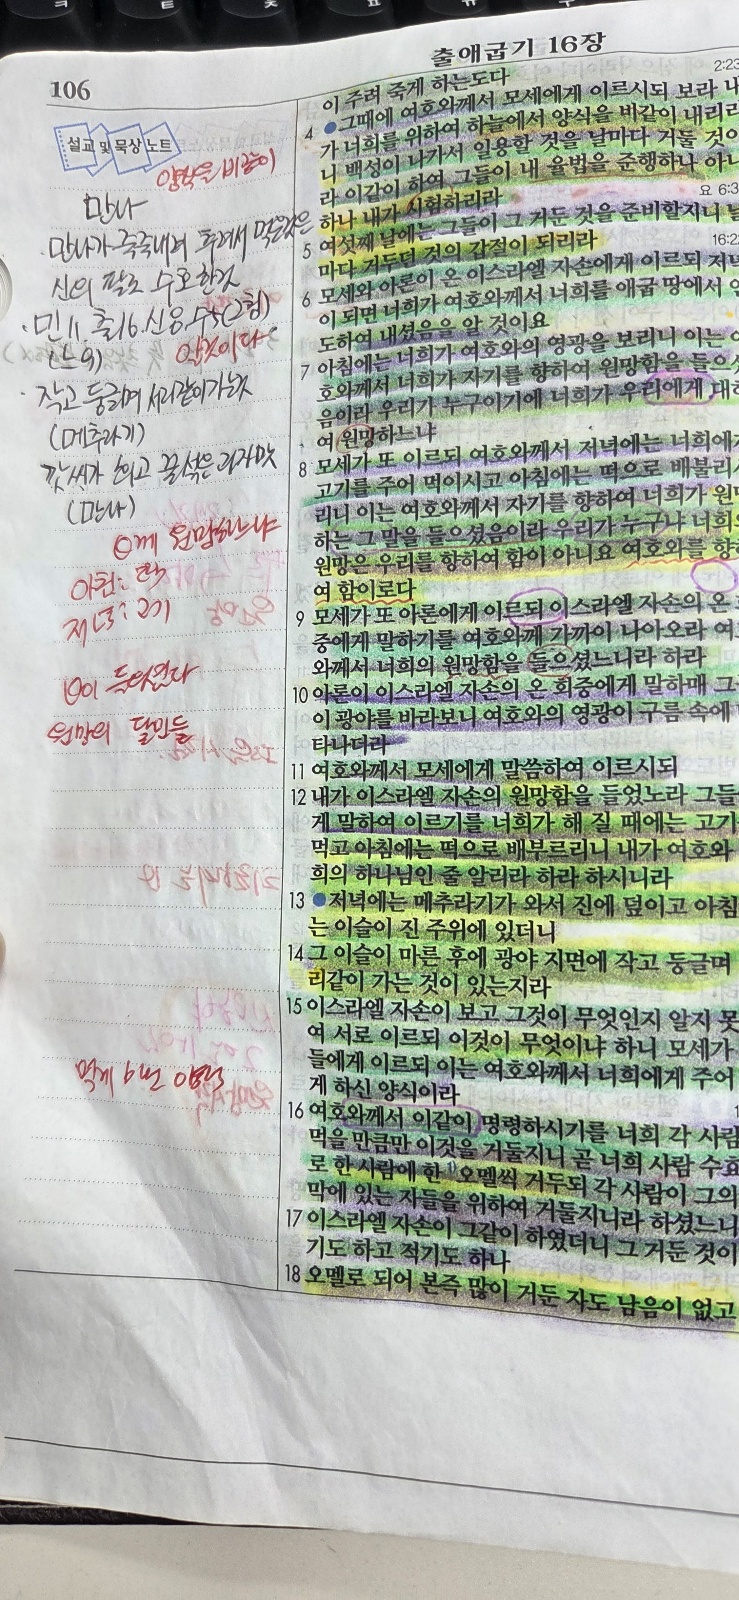 출애굽기 16장
106
2:23
설교 및 묵상 노트
양식을 비같이
만나
신의
(메추라기)
(만나)
께 원망하느냐
아침: 떡
저녁: 고기
이 들으셨다
원망의 달인들
이 주려 죽게 하는도다
4 ●그때에 여호와께서 모세에게 이르시되 보라 내
가 너희를 위하여 하늘에서 양식을 비같이 내리리
니 백성이 나가서 일용할 것을 날마다 거둘 것이
라 이같이 하여 그들이 내 율법을 준행하나 아니
하나 내가 시험하리라
요 6:3
5 여섯째 날에는 그들이 그 거둔 것을 준비할지니 날
마다 거두던 것의 갑절이 되리라
16:22
6 모세와 아론이 온 이스라엘 자손에게 이르되 저녁
이 되면 너희가 여호와께서 너희를 애굽 땅에서 인
도하여 내셨음을 알 것이요
7 아침에는 너희가 여호와의 영광을 보리니 이는 여
호와께서 너희가 자기를 향하여 원망함을 들으셨
음이라 우리가 누구이기에 너희가 우리에게 대하
여 원망하느냐
8 모세가 또 이르되 여호와께서 저녁에는 너희에게
고기를 주어 먹이시고 아침에는 떡으로 배불리시
리니 이는 여호와께서 자기를 향하여 너희가 원망
하는 그 말을 들으셨음이라 우리가 누구냐 너희의
원망은 우리를 향하여 함이 아니요 여호와를 향하
여 함이로다
9 모세가 또 아론에게 이르되 이스라엘 자손의 온 회
중에게 말하기를 여호와께 가까이 나아오라 여호
와께서 너희의 원망함을 들으셨느니라 하라
10 아론이 이스라엘 자손의 온 회중에게 말하매 그들
이 광야를 바라보니 여호와의 영광이 구름 속에 나
타나더라
11 여호와께서 모세에게 말씀하여 이르시되
12 내가 이스라엘 자손의 원망함을 들었노라 그들에
게 말하여 이르기를 너희가 해 질 때에는 고기를
먹고 아침에는 떡으로 배부르리니 내가 여호와 너
희의 하나님인 줄 알리라 하라 하시니라
13 ●저녁에는 메추라기가 와서 진에 덮이고 아침에
는 이슬이 진 주위에 있더니
14 그 이슬이 마른 후에 광야 지면에 작고 둥글며 서
리같이 가는 것이 있는지라
15 이스라엘 자손이 보고 그것이 무엇인지 알지 못하
여 서로 이르되 이것이 무엇이냐 하니 모세가 그
들에게 이르되 이는 여호와께서 너희에게 주어 먹
게 하신 양식이라
16 여호와께서 이같이 명령하시기를 너희 각 사람은
먹을 만큼만 이것을 거둘지니 곧 너희 사람 수효대
로 한 사람에 한 오멜씩 거두되 각 사람이 그의 장
막에 있는 자들을 위하여 거둘지니라 하셨느니라
17 이스라엘 자손이 그같이 하였더니 그 거둔 것이 많
기도 하고 적기도 하나
18 오멜로 되어 본즉 많이 거둔 자도 남음이 없고